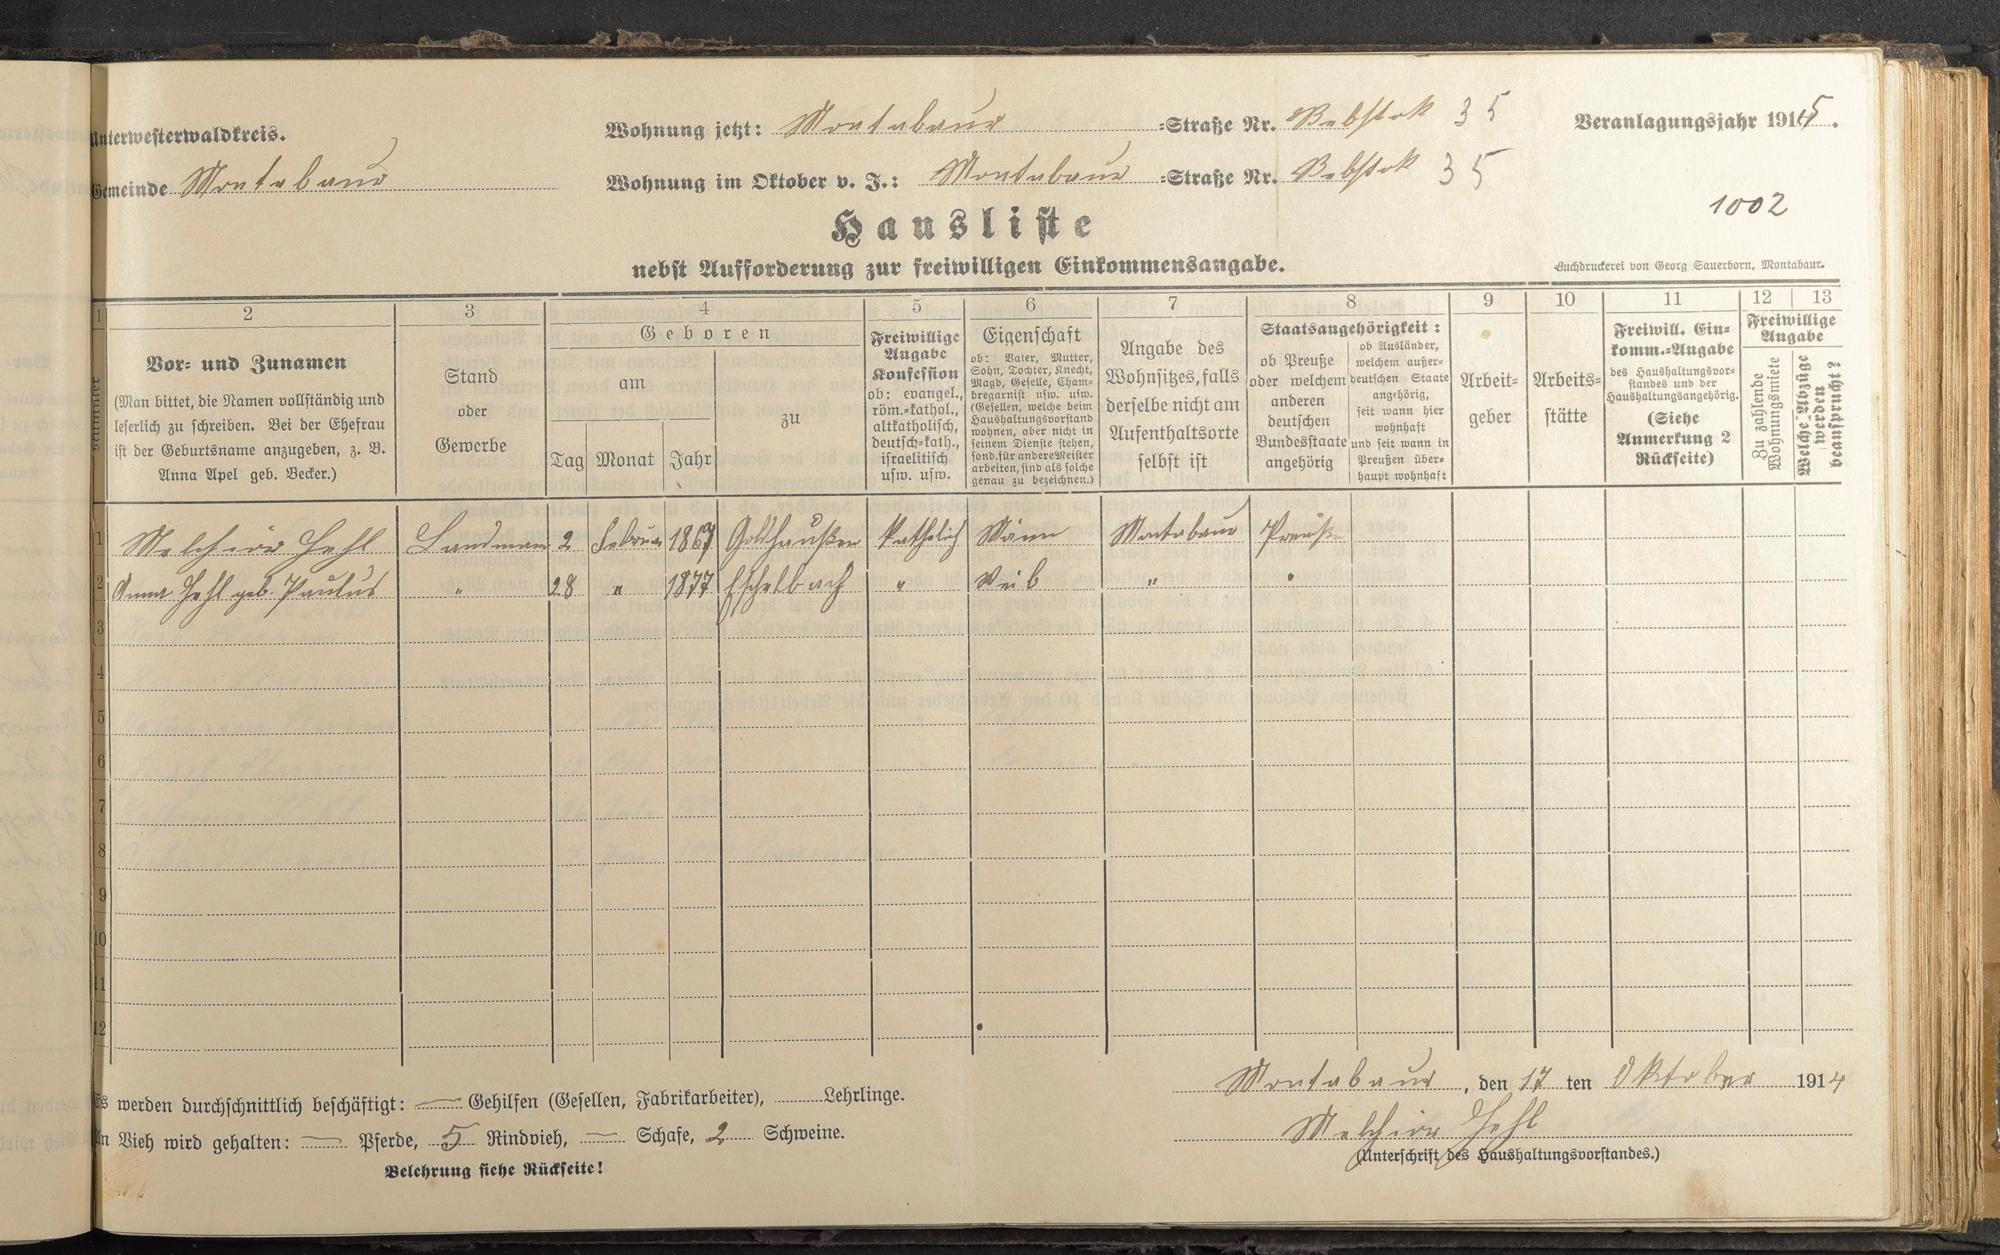 Unterwesterwaldkreis.
Gemeinde Montabaur
Wohnung jetzt: Montabaur =Straße Nr. Rebstok 35
Wohnung im Oktober v. J.: Montabaur =Straße Nr. Rebstok 35
Veranlagungsjahr 1915.
1002
Hausliste
nebst Aufforderung zur freiwilligen Einkommensangabe.
Buchdruckerei von Georg Sauerborn, Montabaur.
1 2 3 4 5 6 7 8 9 10 11 12 13
Nummer
Vor- und Zunamen
(Man bittet, die Namen vollständig und
leserlich zu schreiben. Bei der Ehefrau
ist der Geburtsname anzugeben, z. B.
Anna Apel geb. Becker.)
Stand
oder
Gewerbe
Geboren
am
Tag Monat Jahr
zu
Freiwillige
Angabe
Konfession
ob: evangel.,
röm.=kathol.,
altkatholisch,
deutsch=kath.,
israelitisch
usw. usw.
Eigenschaft
ob: Vater, Mutter,
Sohn, Tochter, Knecht,
Magd, Geselle, Cham-
bregarnist usw. usw.
(Gesellen, welche beim
Haushaltungsvorstand
wohnen, aber nicht in
seinem Dienste stehen,
sond. für andere Meister
arbeiten, sind als solche
genau zu bezeichnen.)
Angabe des
Wohnsitzes, falls
derselbe nicht am
Aufenthaltsorte
selbst ist
Staatsangehörigkeit:
ob Preuße
oder welchem
anderen
deutschen
Bundesstaate
angehörig
ob Ausländer,
welchem außer-
deutschen Staate
angehörig,
seit wann hier
wohnhaft
und seit wann in
Preußen über-
haupt wohnhaft
Arbeit-
geber
Arbeits-
stätte
Freiwill. Ein-
komm.=Angabe
des Haushaltungsvor-
standes und der
Haushaltungsangehörig.
(Siehe
Anmerkung 2
Rückseite)
Freiwillige
Angabe
Zu zahlende
Wohnungsmiete
Welche Abzüge
werden
beansprucht?
1 Melchior Hehl Landman 2 Februar 1867 Goldhaußen Katholich Mann Montabaur Preuße
2 Anna Hehl geb. Paulus " 28 " 1877 Eschelbach " Weib " "
3
4
5
6
7
8
9
10
11
12
Es werden durchschnittlich beschäftigt: — Gehilfen (Gesellen, Fabrikarbeiter), Lehrlinge.
An Vieh wird gehalten: — Pferde, 5 Rindvieh, — Schafe, 2 Schweine.
Belehrung siehe Rückseite!
Montabaur, den 17 ten Oktober 1914
Melchior Hehl
(Unterschrift des Haushaltungsvorstandes.)